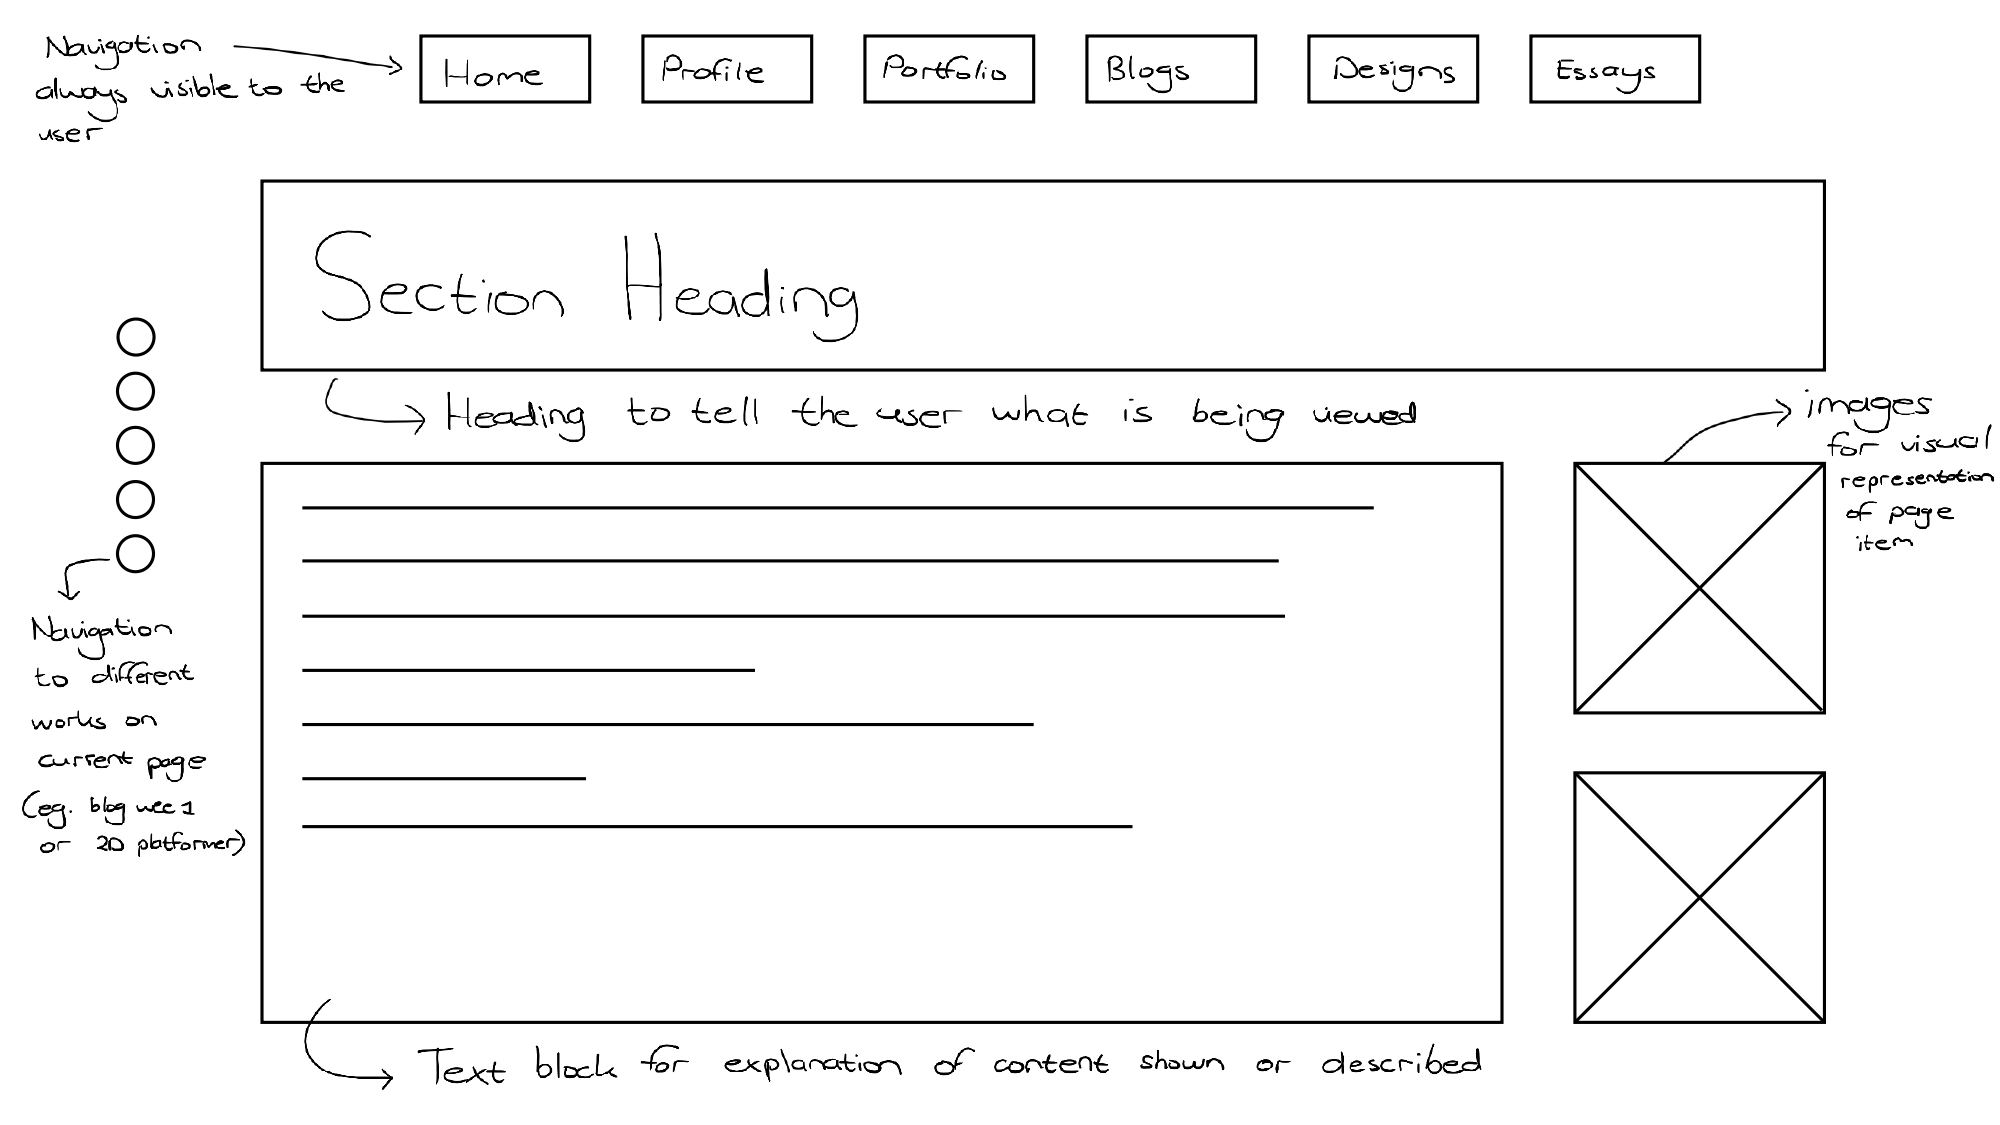 Navigation
always visible to the
user
Home
Profile
Portfolio
Blogs
Designs
Essays
Section Heading
Heading to tell the user what is being viewed
images
for visual
representation
of page
item
Navigation
to different
works on
current page
(eg. blog wee 1
or 2D platformer)
Text block for explanation of content shown or described